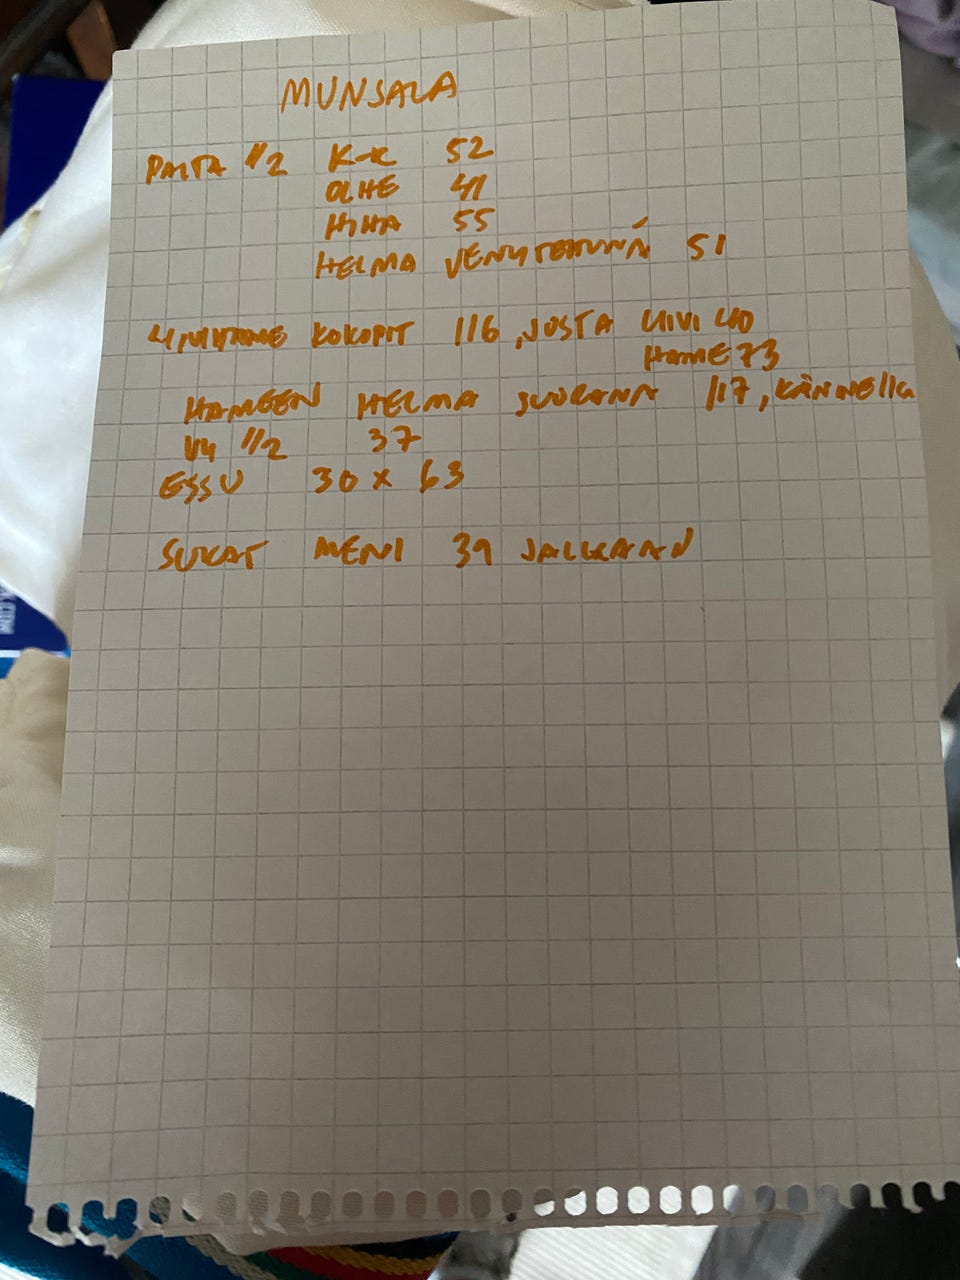 MUNSALA
PAITA 1/2 K-K 52
OLKE 41
HIHA 55
HELMA VENYTETTYNÄ 51
LIIVIHAME KOKOPIT 116, JOSTA LIIVI 40
HAME 73
HAMEEN HELMA SUORANA 117, KÄNNE 11
VY 1/2 37
ESSU 30 x 63
SUKAT MENI 39 JALKAAN